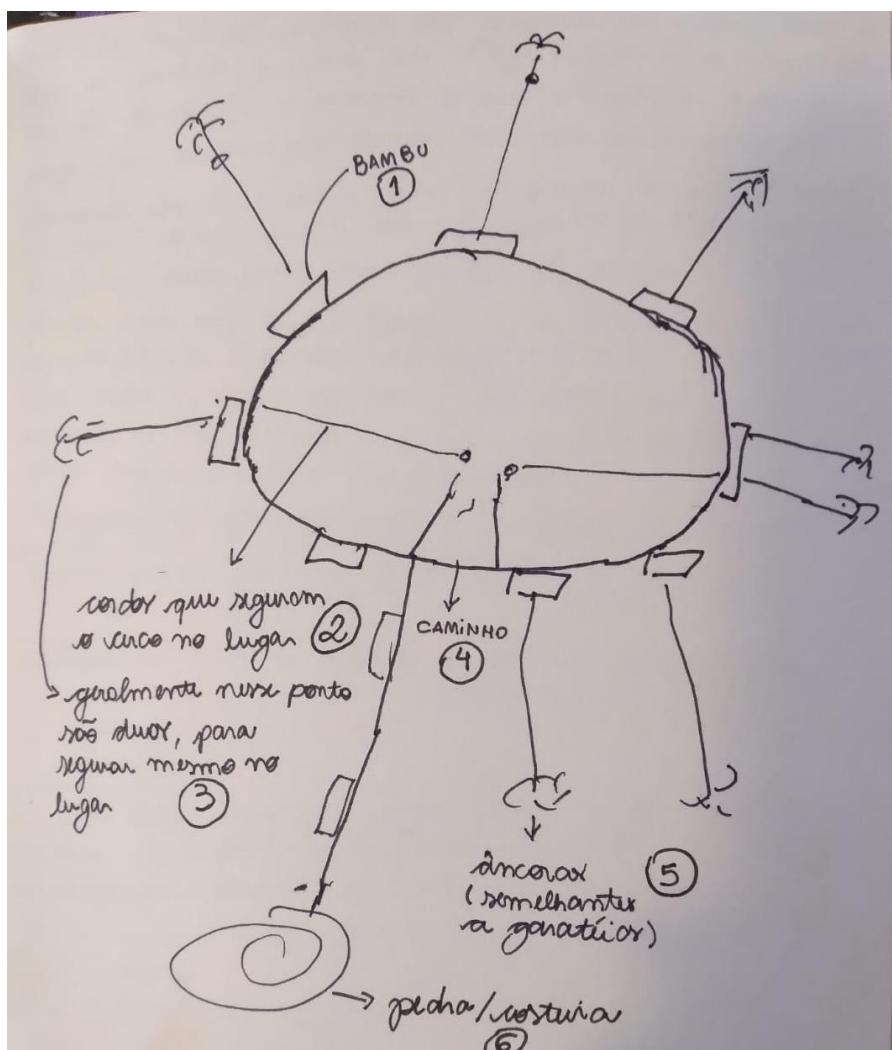 BAMBU
1
cordas que seguram
o cerco no lugar 2
CAMINHO
4
geralmente nesse ponto
são duas, para
segurar mesmo no
lugar 3
âncoras 5
(semelhantes
a garatéias)
pedra/costeira
6